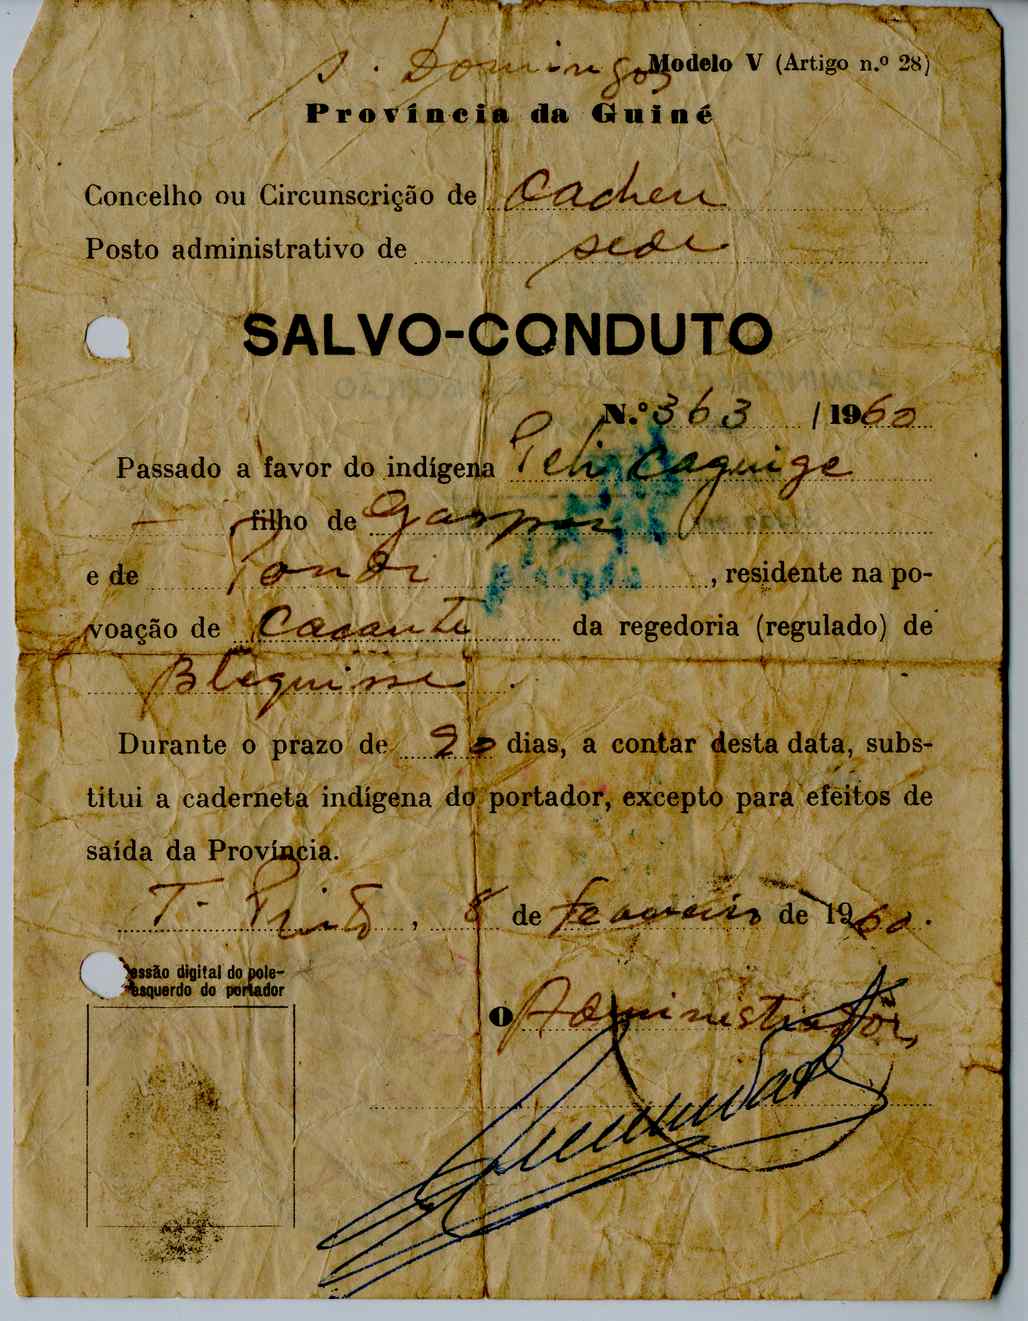 S. Domingos
Modelo V (Artigo n.º 28)
Província da Guiné
Concelho ou Circunscrição de Cacheu
Posto administrativo de sede
SALVO-CONDUTO
N.º 363 / 1960
Passado a favor do indígena Peli Caguige
filho de Gaspar
e de Tondi , residente na po-
voação de Cacante da regedoria (regulado) de
Blequisse .
Durante o prazo de 20 dias, a contar desta data, subs-
titui a caderneta indígena do portador, excepto para efeitos de
saída da Província.
T. Pinto , 8 de fevereiro de 1960.
essão digital do pole-
esquerdo do portador
O Administrador,